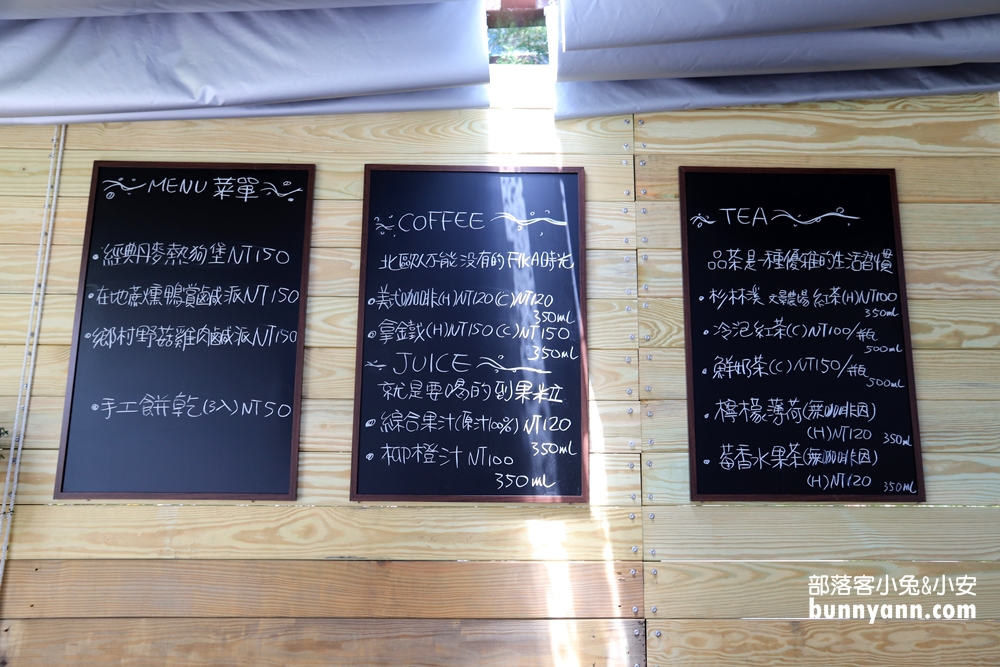 MENU 菜單
•經典丹麥熱狗堡NT150
•在地蔗燻鴨賞鹹派NT150
•鄉村野菇雞肉鹹派NT150
•手工餅乾(3入)NT50
COFFEE
北歐人不能沒有的FIKA時光
•美式咖啡(H)NT120(C)NT120
350mL
•拿鐵(H)NT150(C)NT150
350mL
JUICE
就是要喝的到果粒
•綜合果汁(原汁100%)NT120
350mL
•柳橙汁NT100
350mL
TEA
品茶是一種優雅的生活習慣
•杉林溪 農場紅茶(H)NT100
350mL
•冷泡紅茶(C)NT100/瓶
500mL
•鮮奶茶(C)NT150/瓶
500mL
•檸檬薄荷(無咖啡因)
(H)NT120 350mL
•莓香水果茶(無咖啡因)
(H)NT120 350mL
部落客小兔&小安
bunnyann.com